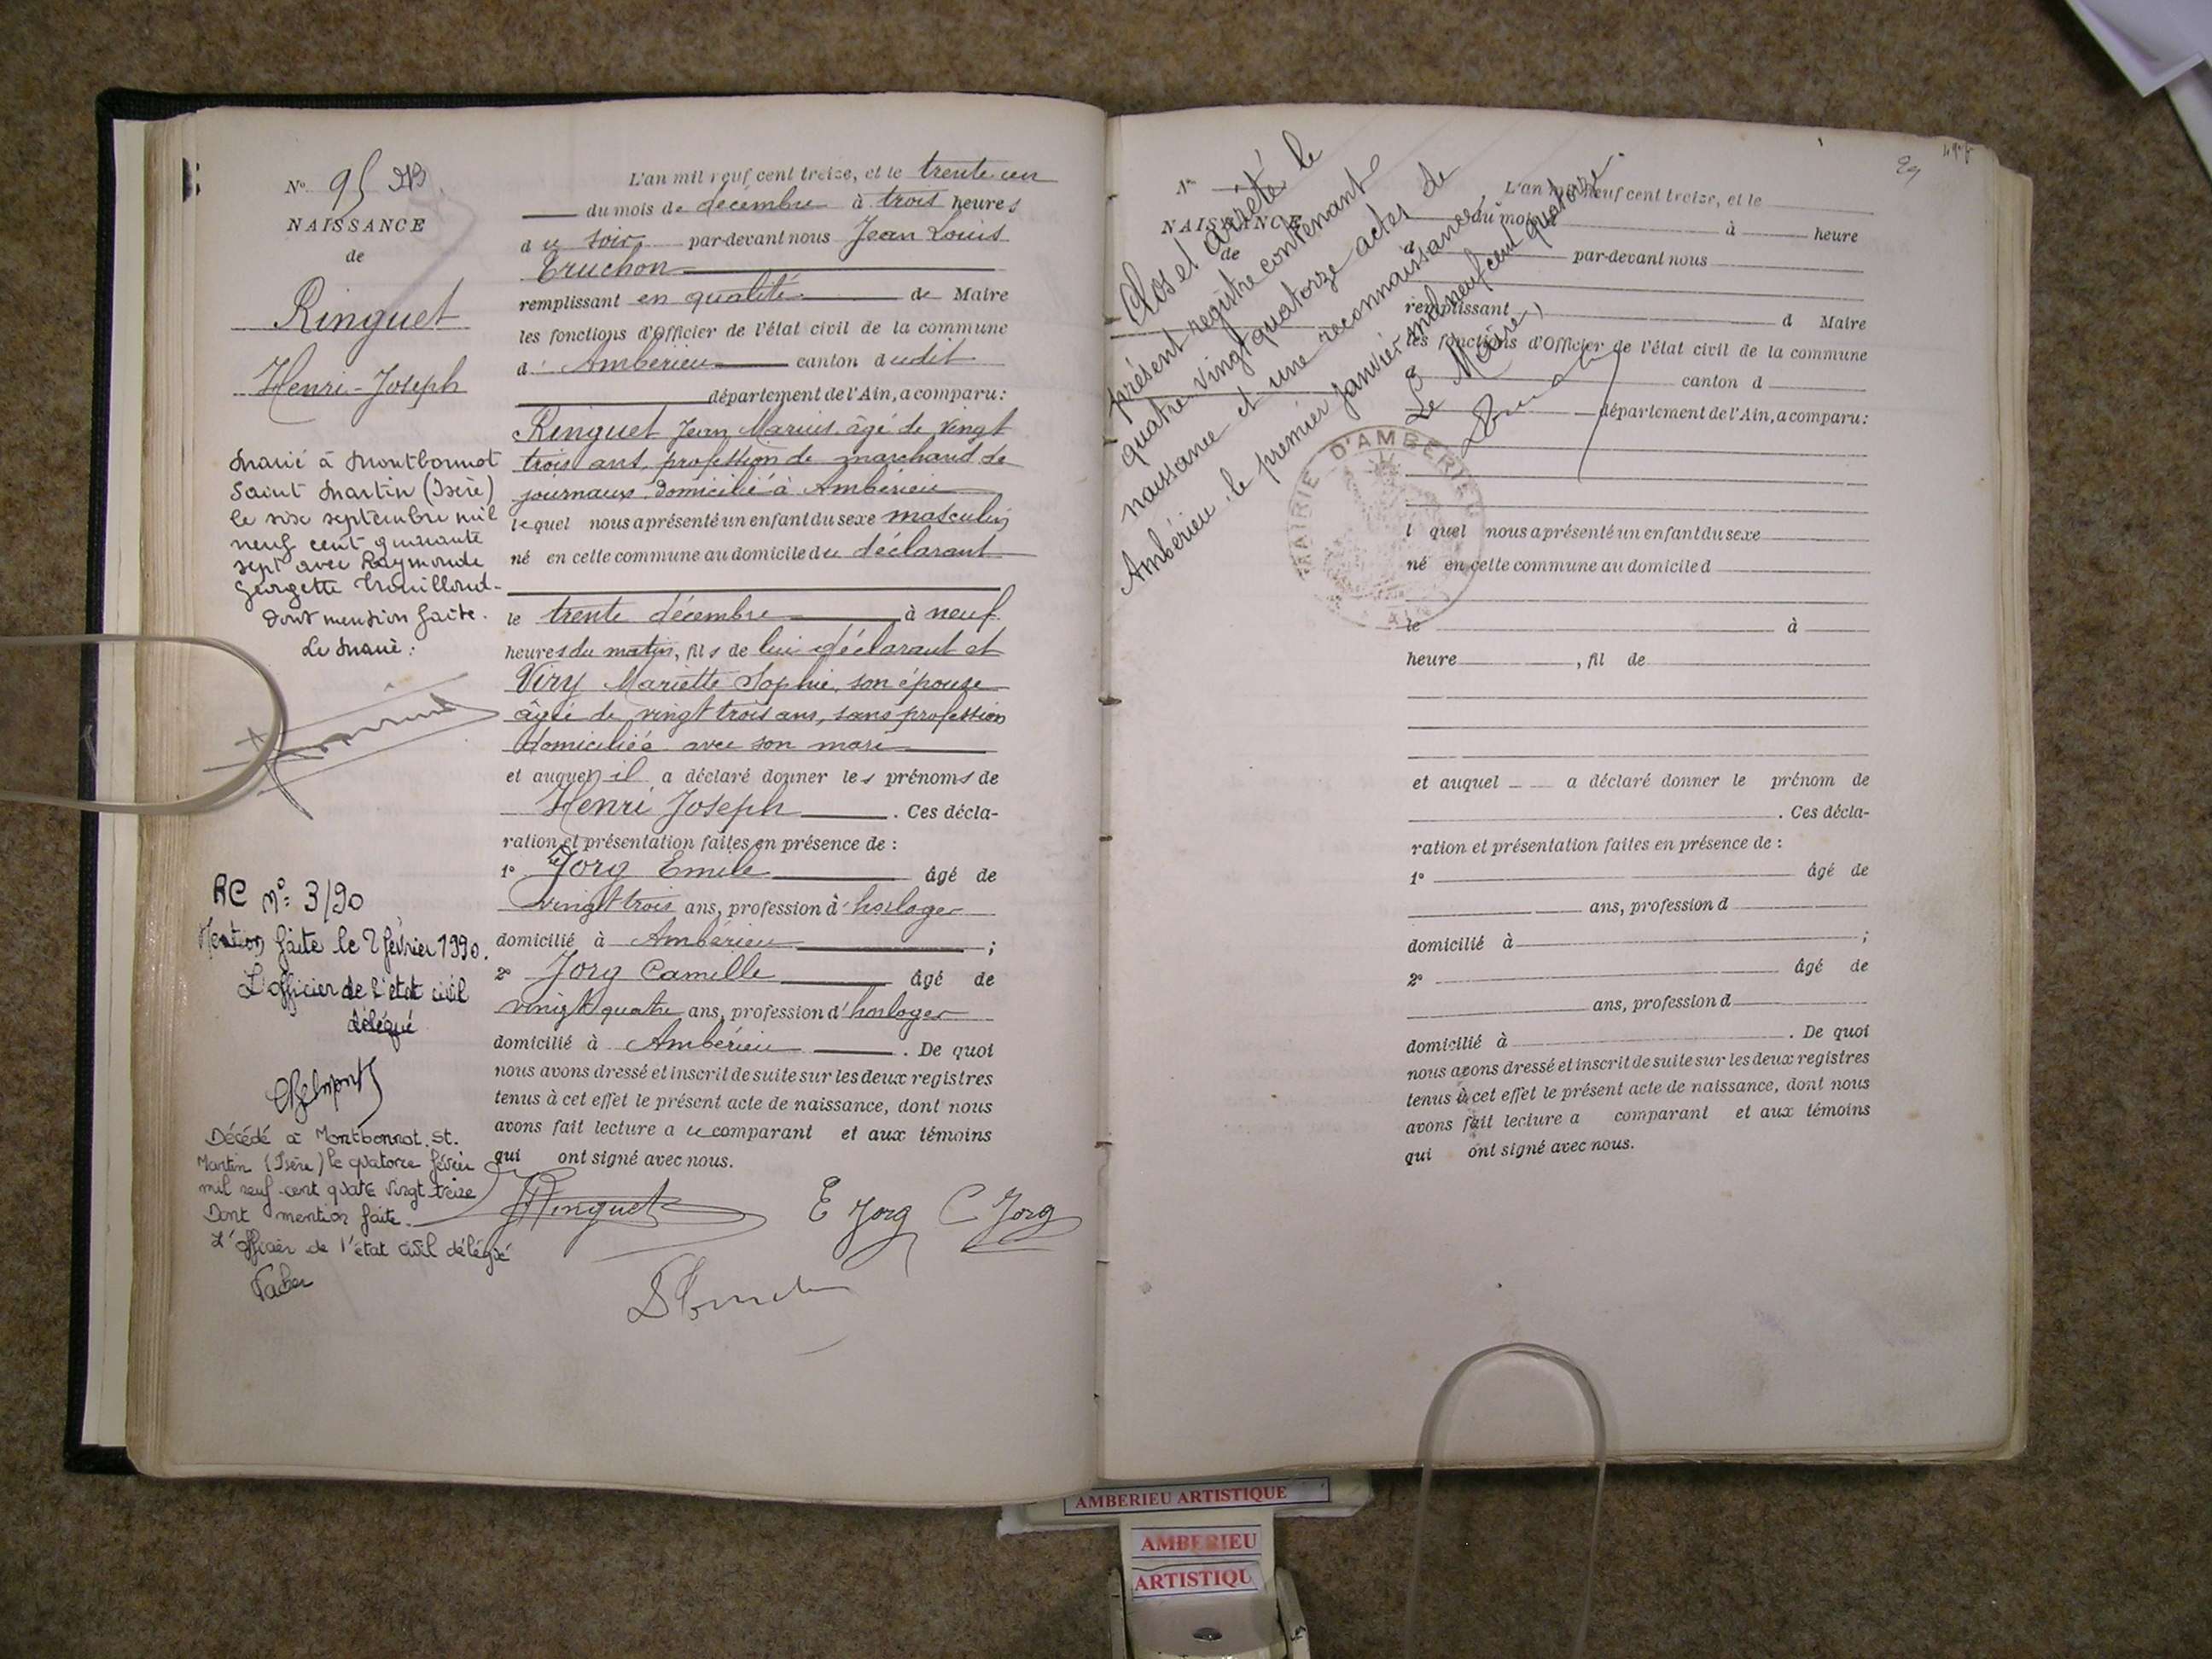 N° 95
NAISSANCE
de
Ringuet
Henri-Joseph
Marié à Montbonnot
Saint Martin (Isère)
le six septembre mil
neuf cent quarante
sept avec Raymonde
Georgette Trouilloud.
Dont mention faite.
Le Maire:
RC n° 3/90
Mention faite le 2 février 1990.
L'officier de l'état civil
délégué
Décédé à Montbonnot. St.
Martin (Isère) le quatorze février
mil neuf cent quatre vingt treize
Dont mention faite.
L'officier de l'état civil délégué
L'an mil neuf cent treize, et le trente un
du mois de décembre à trois heures
du soir par-devant nous Jean Louis
Truchon
remplissant en qualité de Maire
les fonctions d'Officier de l'état civil de la commune
d' Ambérieu canton dudit
département de l'Ain, a comparu:
Ringuet Jean Marius âgé de vingt
trois ans, profession de marchand de
journaux domicilié à Ambérieu
lequel nous a présenté un enfant du sexe masculin
né en cette commune au domicile du déclarant
le trente décembre à neuf
heures du matin, fils de lui déclarant et
Viry Mariette Sophie, son épouse
âgée de vingt trois ans, sans profession
domiciliée avec son mari
et auquel il a déclaré donner les prénoms de
Henri Joseph. Ces décla-
ration et présentation faites en présence de :
1° Jorg Emile âgé de
vingt trois ans, profession d'horloger
domicilié à Ambérieu ;
2° Jorg Camille âgé de
vingt quatre ans, profession d'horloger
domicilié à Ambérieu. De quoi
nous avons dressé et inscrit de suite sur les deux registres
tenus à cet effet le présent acte de naissance, dont nous
avons fait lecture au comparant et aux témoins
qui ont signé avec nous.
Ringuet E Jorg C Jorg
29
N°
NAISSANCE
de
Clos et arrêté le
présent registre contenant
quatre vingt quatorze actes de
naissance et une reconnaissance
Ambérieu le premier janvier mil neuf cent quatorze
Le Maire,
MAIRIE D'AMBÉRIEU
L'an mil neuf cent treize, et le
du mois à heure
d par-devant nous
remplissant d Maire
les fonctions d'Officier de l'état civil de la commune
d canton d
département de l'Ain, a comparu:
l quel nous a présenté un enfant du sexe
né en cette commune au domicile d
le à
heure , fil de
et auquel a déclaré donner le prénom de
. Ces décla-
ration et présentation faites en présence de :
1° âgé de
ans, profession d
domicilié à ;
2° âgé de
ans, profession d
domicilié à . De quoi
nous avons dressé et inscrit de suite sur les deux registres
tenus à cet effet le présent acte de naissance, dont nous
avons fait lecture a comparant et aux témoins
qui ont signé avec nous.
AMBERIEU ARTISTIQUE
AMBERIEU
ARTISTIQU